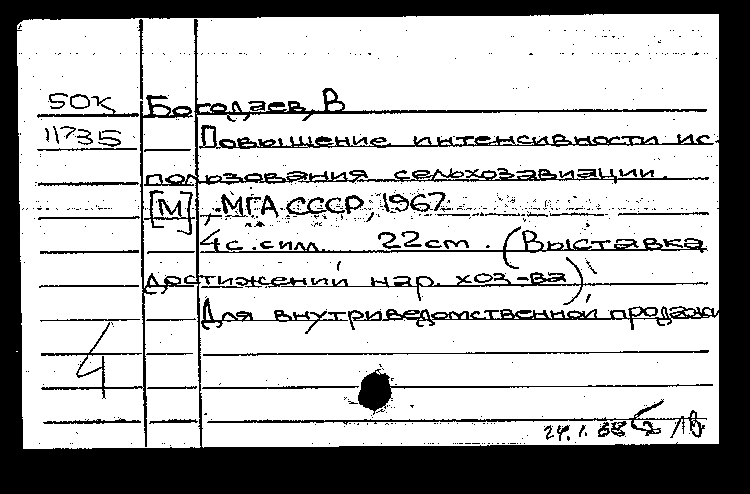 50к Богодаев, В
11735 Повышение интенсивности ис
пользования сельхозавиации.
[М], МГА СССР, 1967
4с. с илл. 22cm. (Выставка
достижений нар. хоз-ва).
Для внутриведомственной продажи
4
24.1.68